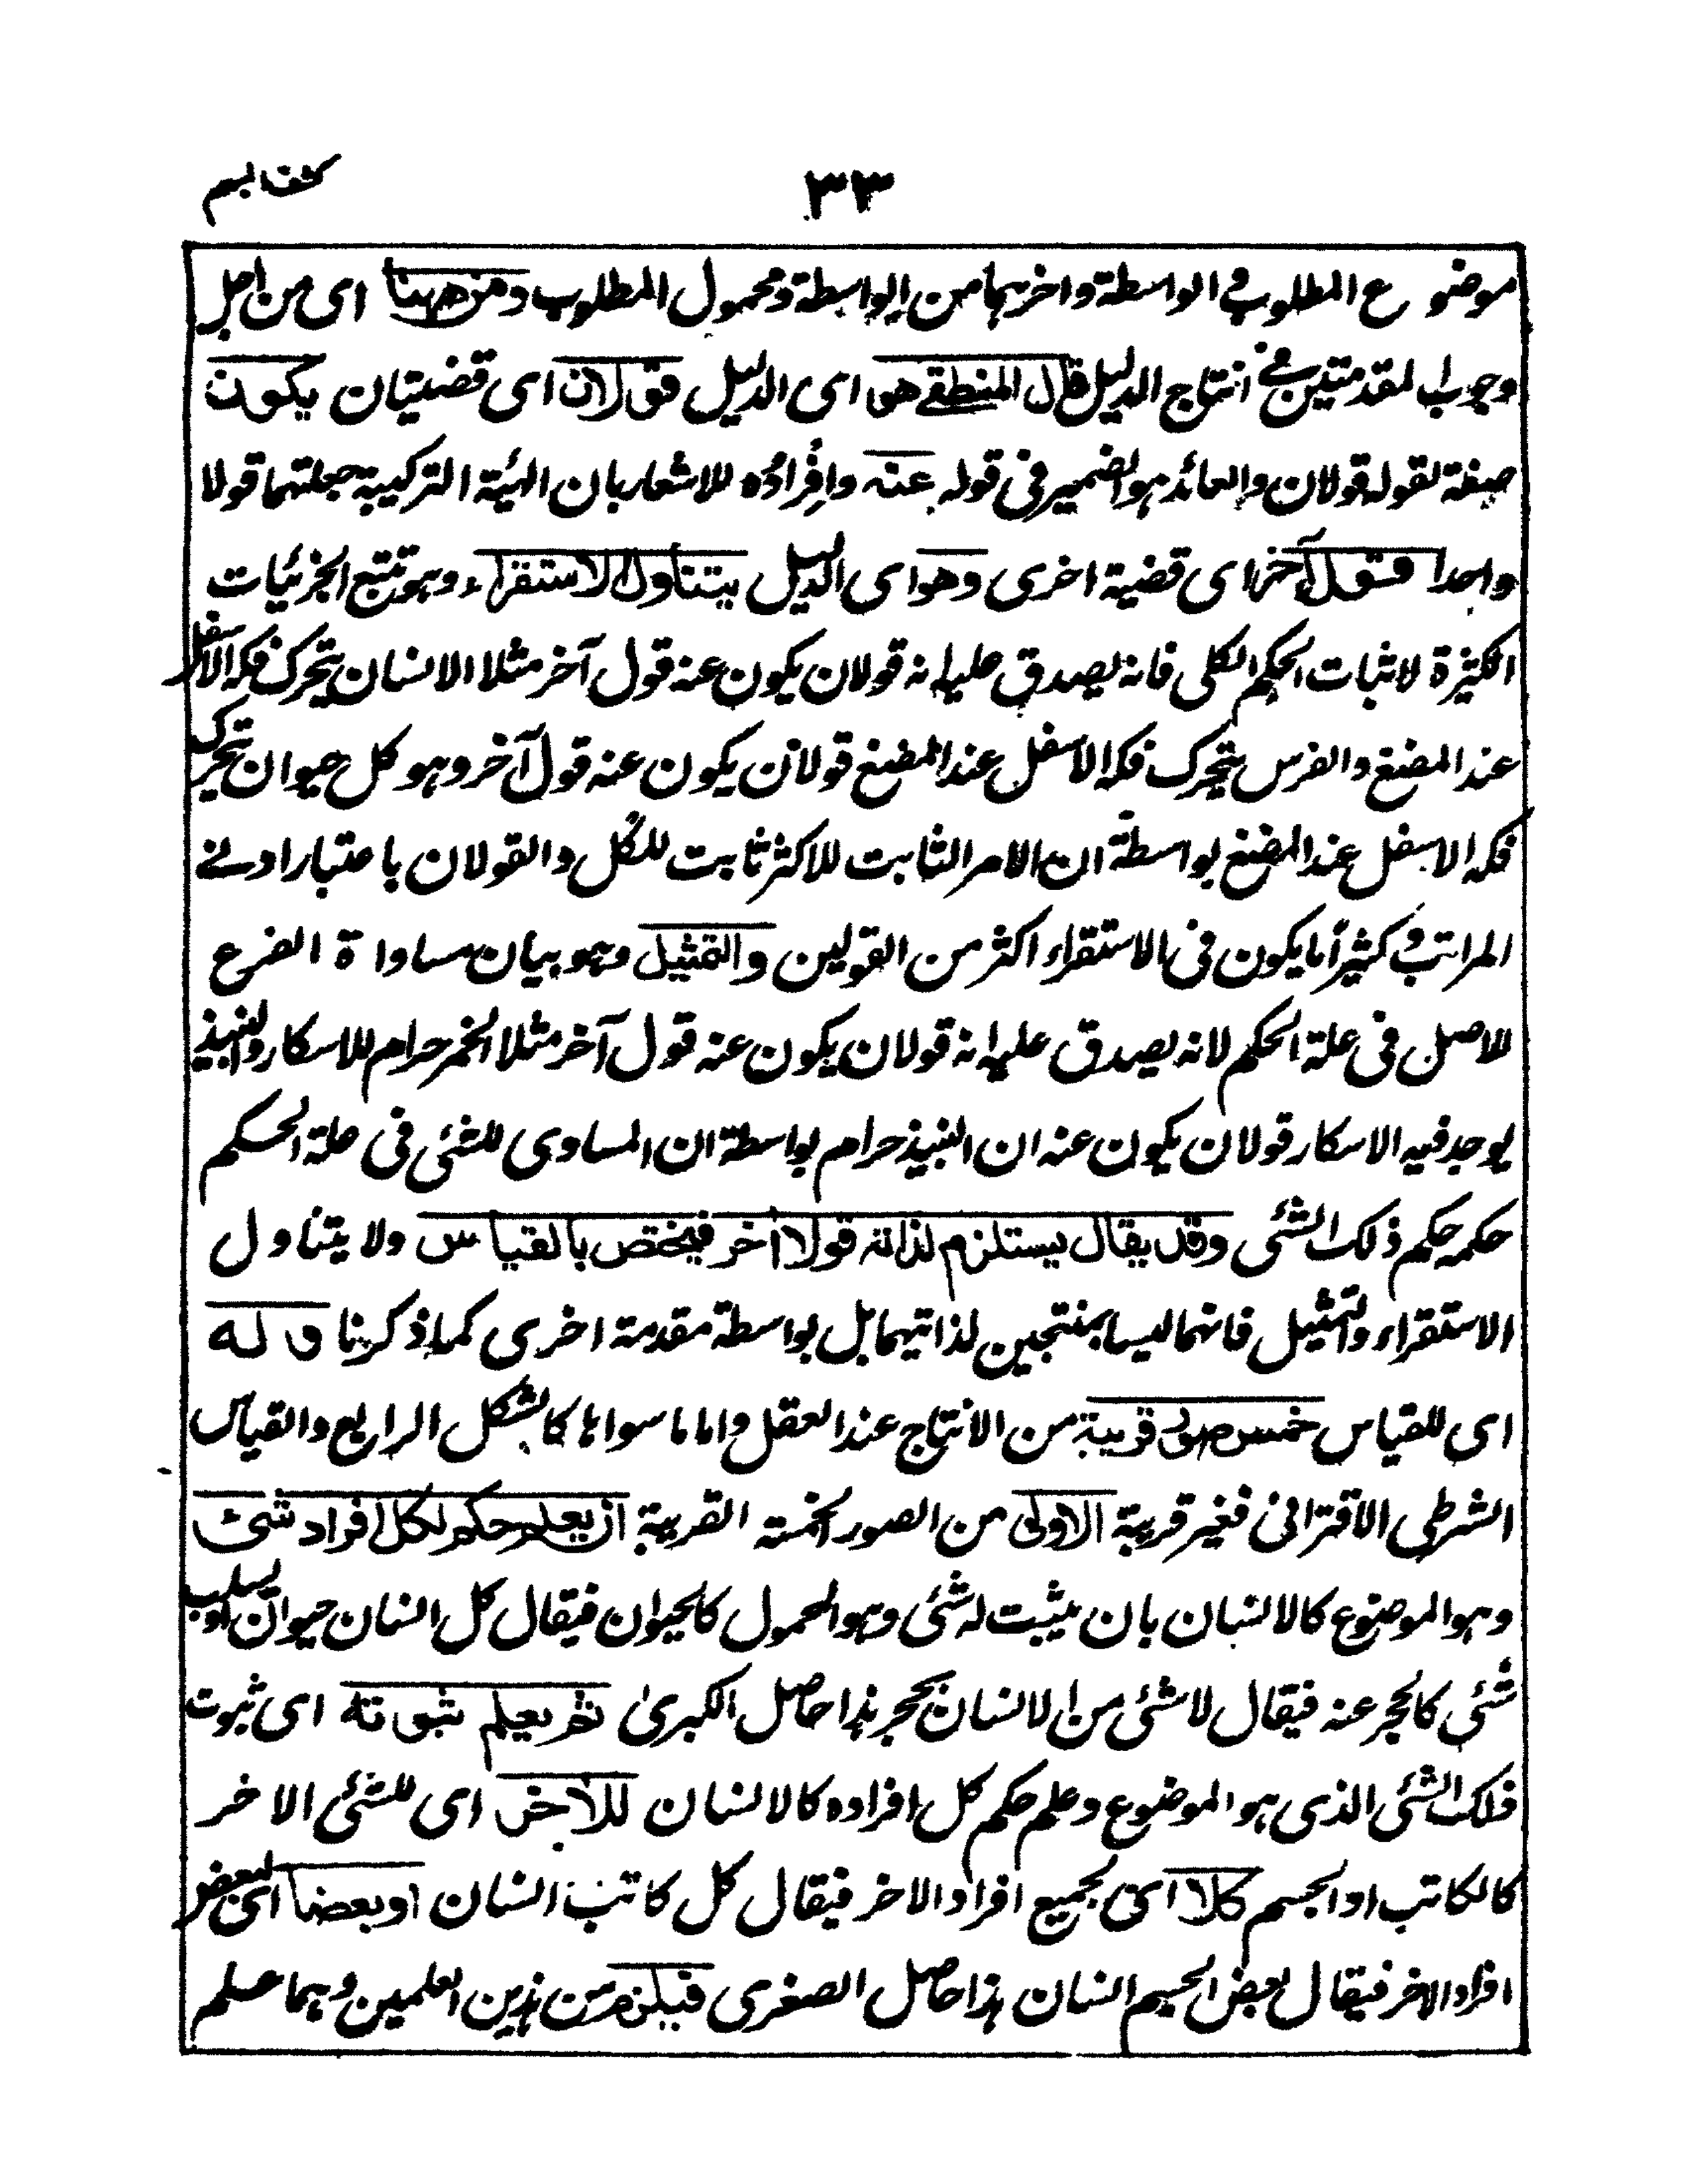 ٣٣ كشف المبهم
موضوع المطلوب والواسطة واخرىهما من الواسطة ومحمول المطلوب ومن ههنا اى من اجل
وجوب المقدمتين فى انتاج الدليل قال المنطقى هو اى الدليل قولان اى قضيتان يكون
صفة لقوله قولان والعائد هو الضمير فى قوله عنه وافراده للاشعار بان الهيئة التركيبية جعلتهما قولا
واحدا قول آخر اى قضية اخرى وهو اى الدليل يتناول الاستقراء وهو تتبع الجزئيات
الكثيرة لاثبات الحكم الكلى فانه يصدق عليه انه قولان يكون عنه قول آخر مثلا الانسان يتحرك فكه الاسفل
عند المضغ والفرس يتحرك فكه الاسفل عند المضغ قولان يكون عنه قول آخر وهو كل حيوان يتحرك
فكه الاسفل عند المضغ بواسطة ان الامر الثابت للاكثر ثابت للكل والقولان باعتبار ادنى
المراتب وكثيرا ما يكون فى الاستقراء اكثر من القولين والتمثيل وهو بيان مساواة الفرع
للاصل فى علة الحكم لانه يصدق عليه انه قولان يكون عنه قول آخر مثلا الخمر حرام للاسكار والنبيذ
يوجد فيه الاسكار قولان يكون عنه ان النبيذ حرام بواسطة ان المساوى للشئى فى علة الحكم
حكمه حكم ذلك الشئى وقد يقال يستلزم لذاته قولا آخر فيختص بالقياس ولا يتناول
الاستقراء والتمثيل فانهما ليسا بمنتجين لذاتيهما بل بواسطة مقدمة اخرى كما ذكرنا وله
اى للقياس خمس صور قريبة من الانتاج عند العقل واما ما سواها كالشكل الرابع والقياس
الشرطى الاقترانى فغير قريبة الاولى من الصور الخمسة القريبة ان يعلم حكم لكل افراد شئ
وهو الموضوع كالانسان بان يثبت له شئى وهو المحمول كالحيوان فيقال كل انسان حيوان او يسلب
شئى كالحجر عنه فيقال لا شئى من الانسان بحجر هذا حاصل الكبرىٰ ثم يعلم ثبوته اى ثبوت
ذلك الشئى الذى هو الموضوع وعلم حكم كل افراده كالانسان للآخر اى للشئى الاخر
كالكاتب او الجسم كلا اى لجميع افراد الاخر فيقال كل كاتب انسان او بعضا اى لبعض
افراد الاخر فيقال بعض الجسم انسان هذا حاصل الصغرى فيلزم من هذين العلمين وهما علم